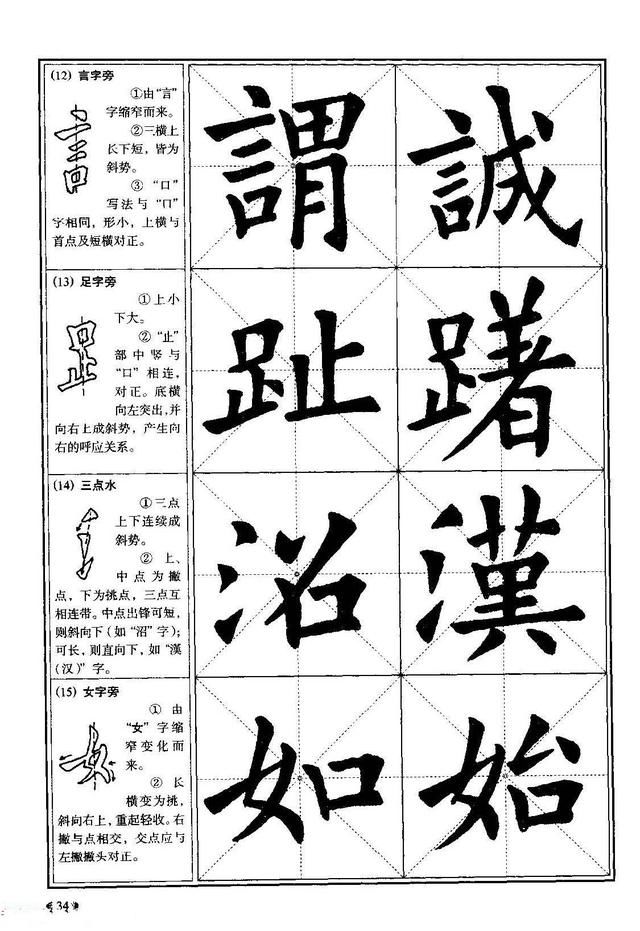 (12) 言字旁
①由“言”
字缩窄而来。
②三横上
长下短，皆为
斜势。
③ “口”
写法与“口”
字相同，形小，上横与
首点及短横对正。
謂 誠
(13) 足字旁
①上小
下大。
②“止”
部中竖与
“口”相连，
对正。底横
向左突出，并
向右上成斜势，产生向
右的呼应关系。
趾 躇
(14) 三点水
①三点
上下连续成
斜势。
② 上、
中点为撇
点，下为挑点，三点互
相连带。中点出锋可短，
则斜向下（如“沼”字）；
可长，则直向下，如“漢
（汉）”字。
沼 漢
(15) 女字旁
① 由
“女”字缩
窄变化而
来。
② 长
横变为挑，
斜向右上，重起轻收。右
撇与点相交，交点应与
左撇撇头对正。
如 始
34